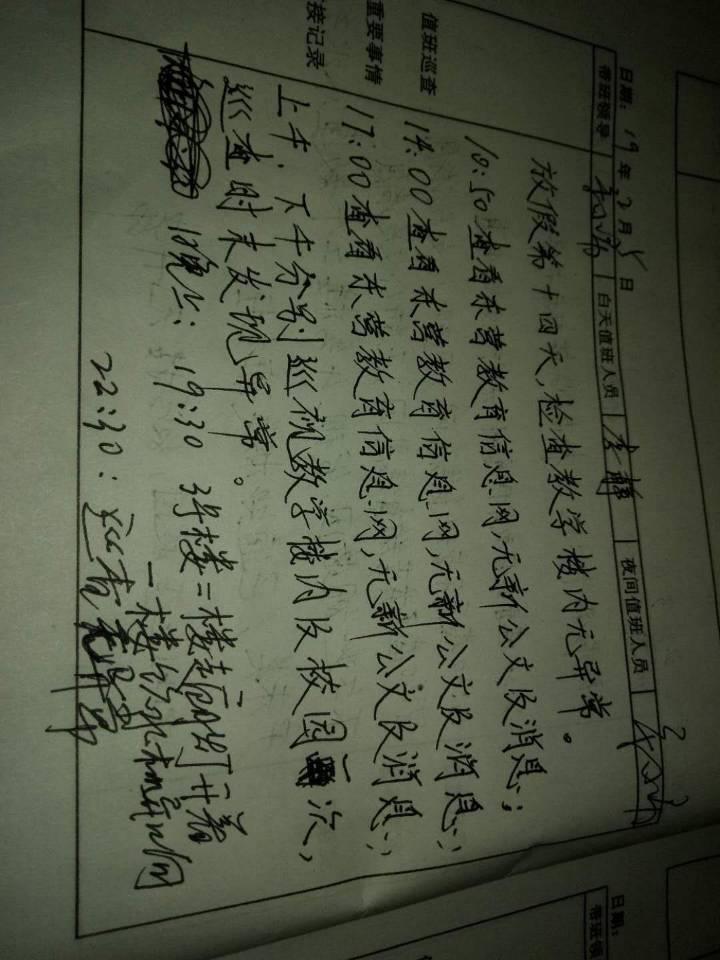 日期: 19 年 2 月 5 日
带班领导 白天值班人员 李静 夜间值班人员
值班巡查
重要事情
接记录
放假第十四天,检查教学楼内无异常。
10:50查看来营教育信息网,无新公文及消息;
14:00查看来营教育信息网,无新公文及消息;
17:00查看来营教育信息网,无新公文及消息;
上午、下午分别巡视教学楼内及校园一次,
巡查时未发现异常。
晚上: 19:30 3号楼二楼走廊灯开着
一楼
22:30: 巡查无异常
日期:
带班领